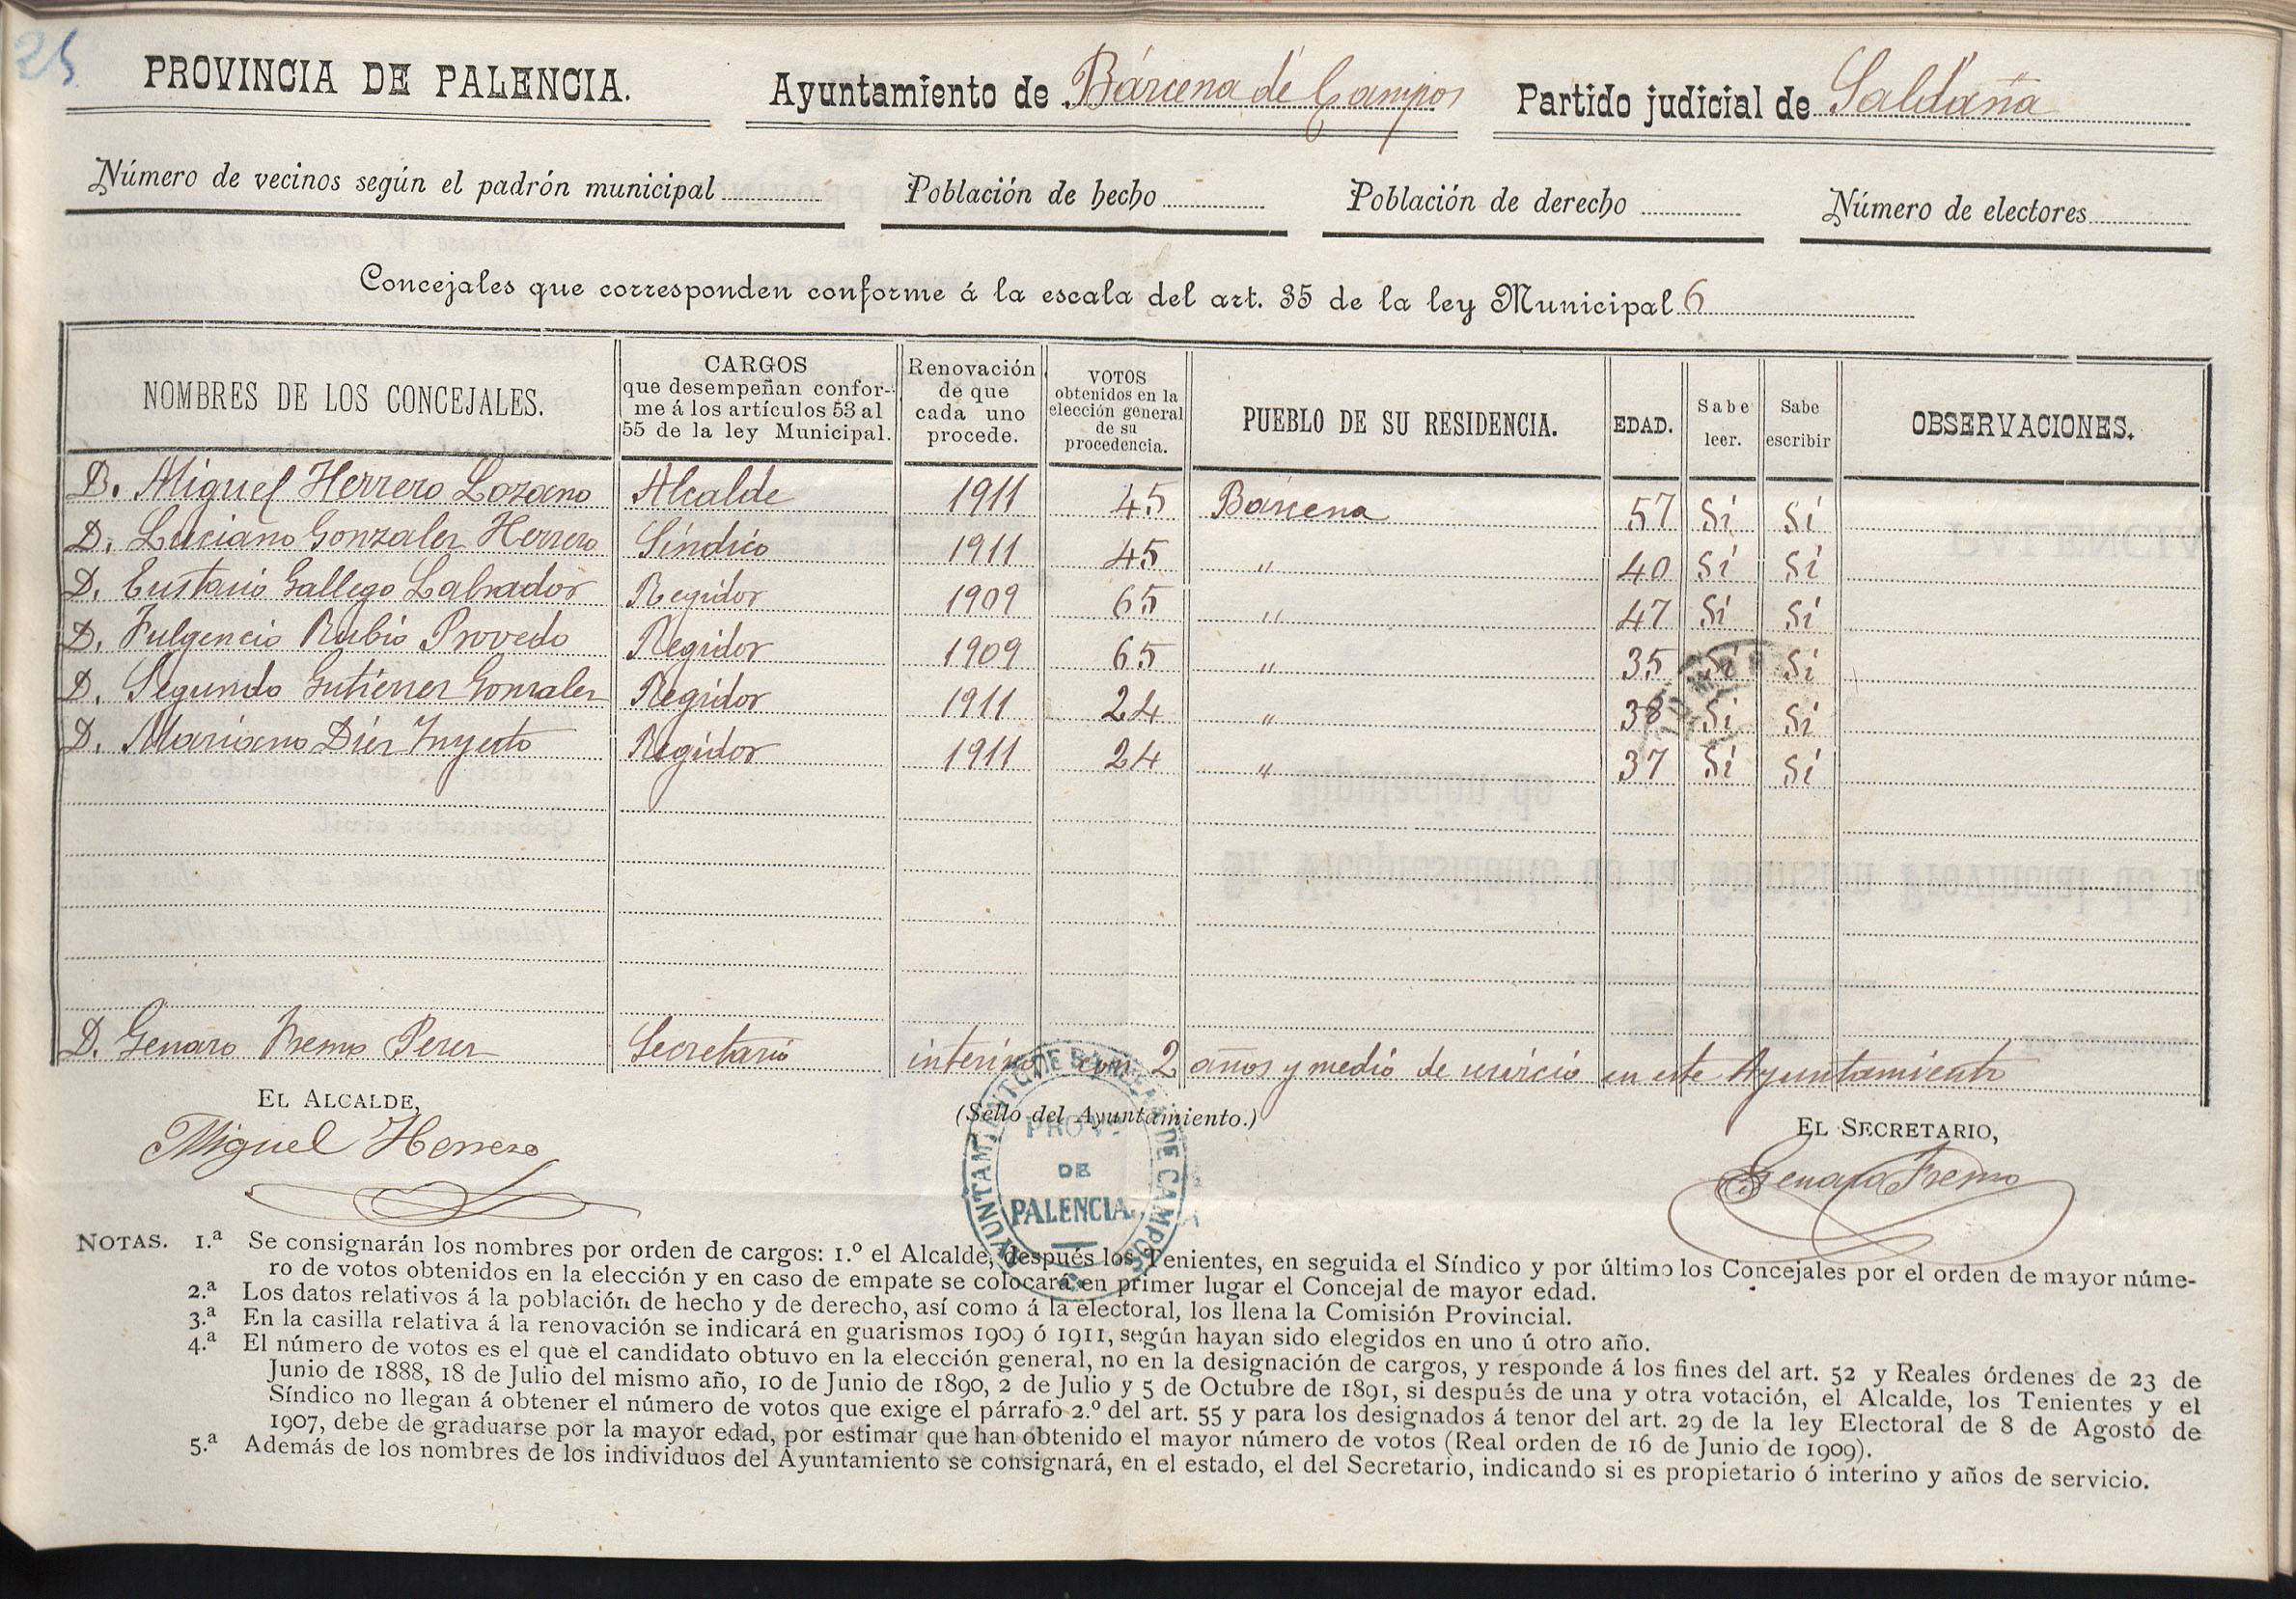 25
PROVINCIA DE PALENCIA. Ayuntamiento de Bárcena de Campos Partido judicial de Saldaña
Número de vecinos según el padrón municipal Población de hecho Población de derecho Número de electores
Concejales que corresponden conforme á la escala del art. 35 de la ley Municipal 6
NOMBRES DE LOS CONCEJALES. CARGOS que desempeñan confor- me á los artículos 53 al 55 de la ley Municipal. Renovación de que cada uno procede. VOTOS obtenidos en la elección general de su procedencia. PUEBLO DE SU RESIDENCIA. EDAD. Sabe leer. Sabe escribir OBSERVACIONES.
D. Miguel Herrero Lozano Alcalde 1911 45 Barcena 57 Sí Sí
D. Luciano Gonzalez Herrero Síndico 1911 45 " 40 Sí Sí
D. Eustasio Gallego Labrador Regidor 1909 65 " 47 Sí Sí
D. Fulgencio Rubio Provedo Regidor 1909 65 " 35 Sí Sí
D. Segundo Gutierrez Gonzalez Regidor 1911 24 " 38 Sí Sí
D. Mariano Diez Inyesto Regidor 1911 24 " 37 Sí Sí
D. Genaro Perez Secretario interino con 2 años y medio de servicio en este Ayuntamiento
EL ALCALDE, (Sello del Ayuntamiento.) EL SECRETARIO,
Miguel Herrero Genaro
AYUNTAMIENTO DE BARCENA DE CAMPOS
PROV.ª
DE
PALENCIA.
NOTAS. 1.ª Se consignarán los nombres por orden de cargos: 1.º el Alcalde, después los Tenientes, en seguida el Síndico y por último los Concejales por el orden de mayor núme-
ro de votos obtenidos en la elección y en caso de empate se colocará en primer lugar el Concejal de mayor edad.
2.ª Los datos relativos á la población de hecho y de derecho, así como á la electoral, los llena la Comisión Provincial.
3.ª En la casilla relativa á la renovación se indicará en guarismos 1909 ó 1911, según hayan sido elegidos en uno ú otro año.
4.ª El número de votos es el que el candidato obtuvo en la elección general, no en la designación de cargos, y responde á los fines del art. 52 y Reales órdenes de 23 de
Junio de 1888, 18 de Julio del mismo año, 10 de Junio de 1890, 2 de Julio y 5 de Octubre de 1891, si después de una y otra votación, el Alcalde, los Tenientes y el
Síndico no llegan á obtener el número de votos que exige el párrafo 2.º del art. 55 y para los designados á tenor del art. 29 de la ley Electoral de 8 de Agosto de
1907, debe de graduarse por la mayor edad, por estimar que han obtenido el mayor número de votos (Real orden de 16 de Junio de 1909).
5.ª Además de los nombres de los individuos del Ayuntamiento se consignará, en el estado, el del Secretario, indicando si es propietario ó interino y años de servicio.